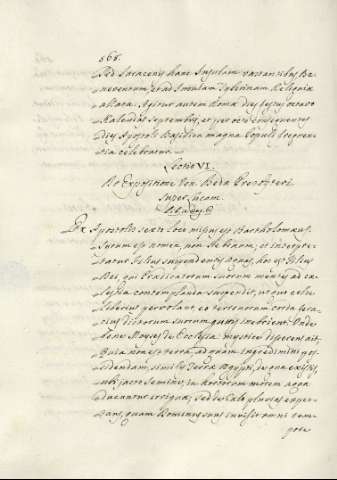 668.
Sed Saracenis hanc Insulam vastantibus Be-
neventum, et ad Insulam Tyberinam Religiose
allata. Agitur autem Romæ dies festus octavo
Kalendas Septembris, et per octo consequentes
dies Apostoli Basilica magna Populi frequen-
tia celebratur.
Lectio VI.
De Expositione Ven. Bedæ Presbyteri
super Lucam.
Ex Apostolis sexto loco missus est Bartholomæus.
Syrum est nomen, non Hebræum, et interpre-
tatur Filius suspendentis aquas, hoc est Filius
Dei, qui Prædicatorum suorum mentes ad cæ-
lestia contemplanda suspendit, ut quo cælu
liberius pervolant, eo terrenorum corda
dictorum suorum guttis inebrient. Unde
bene Moyses de Ecclesia mystice disserens ait:
non est terra, ad quam ingredimini pos-
sidendam, sicut terra Egypti, de qua existis,
ubi jacto semine, in hortorum morem aquæ
ducuntur irriguæ; sed de Cælo pluvias expec-
tans, quam Dominus suus invisit omni tem-
pore